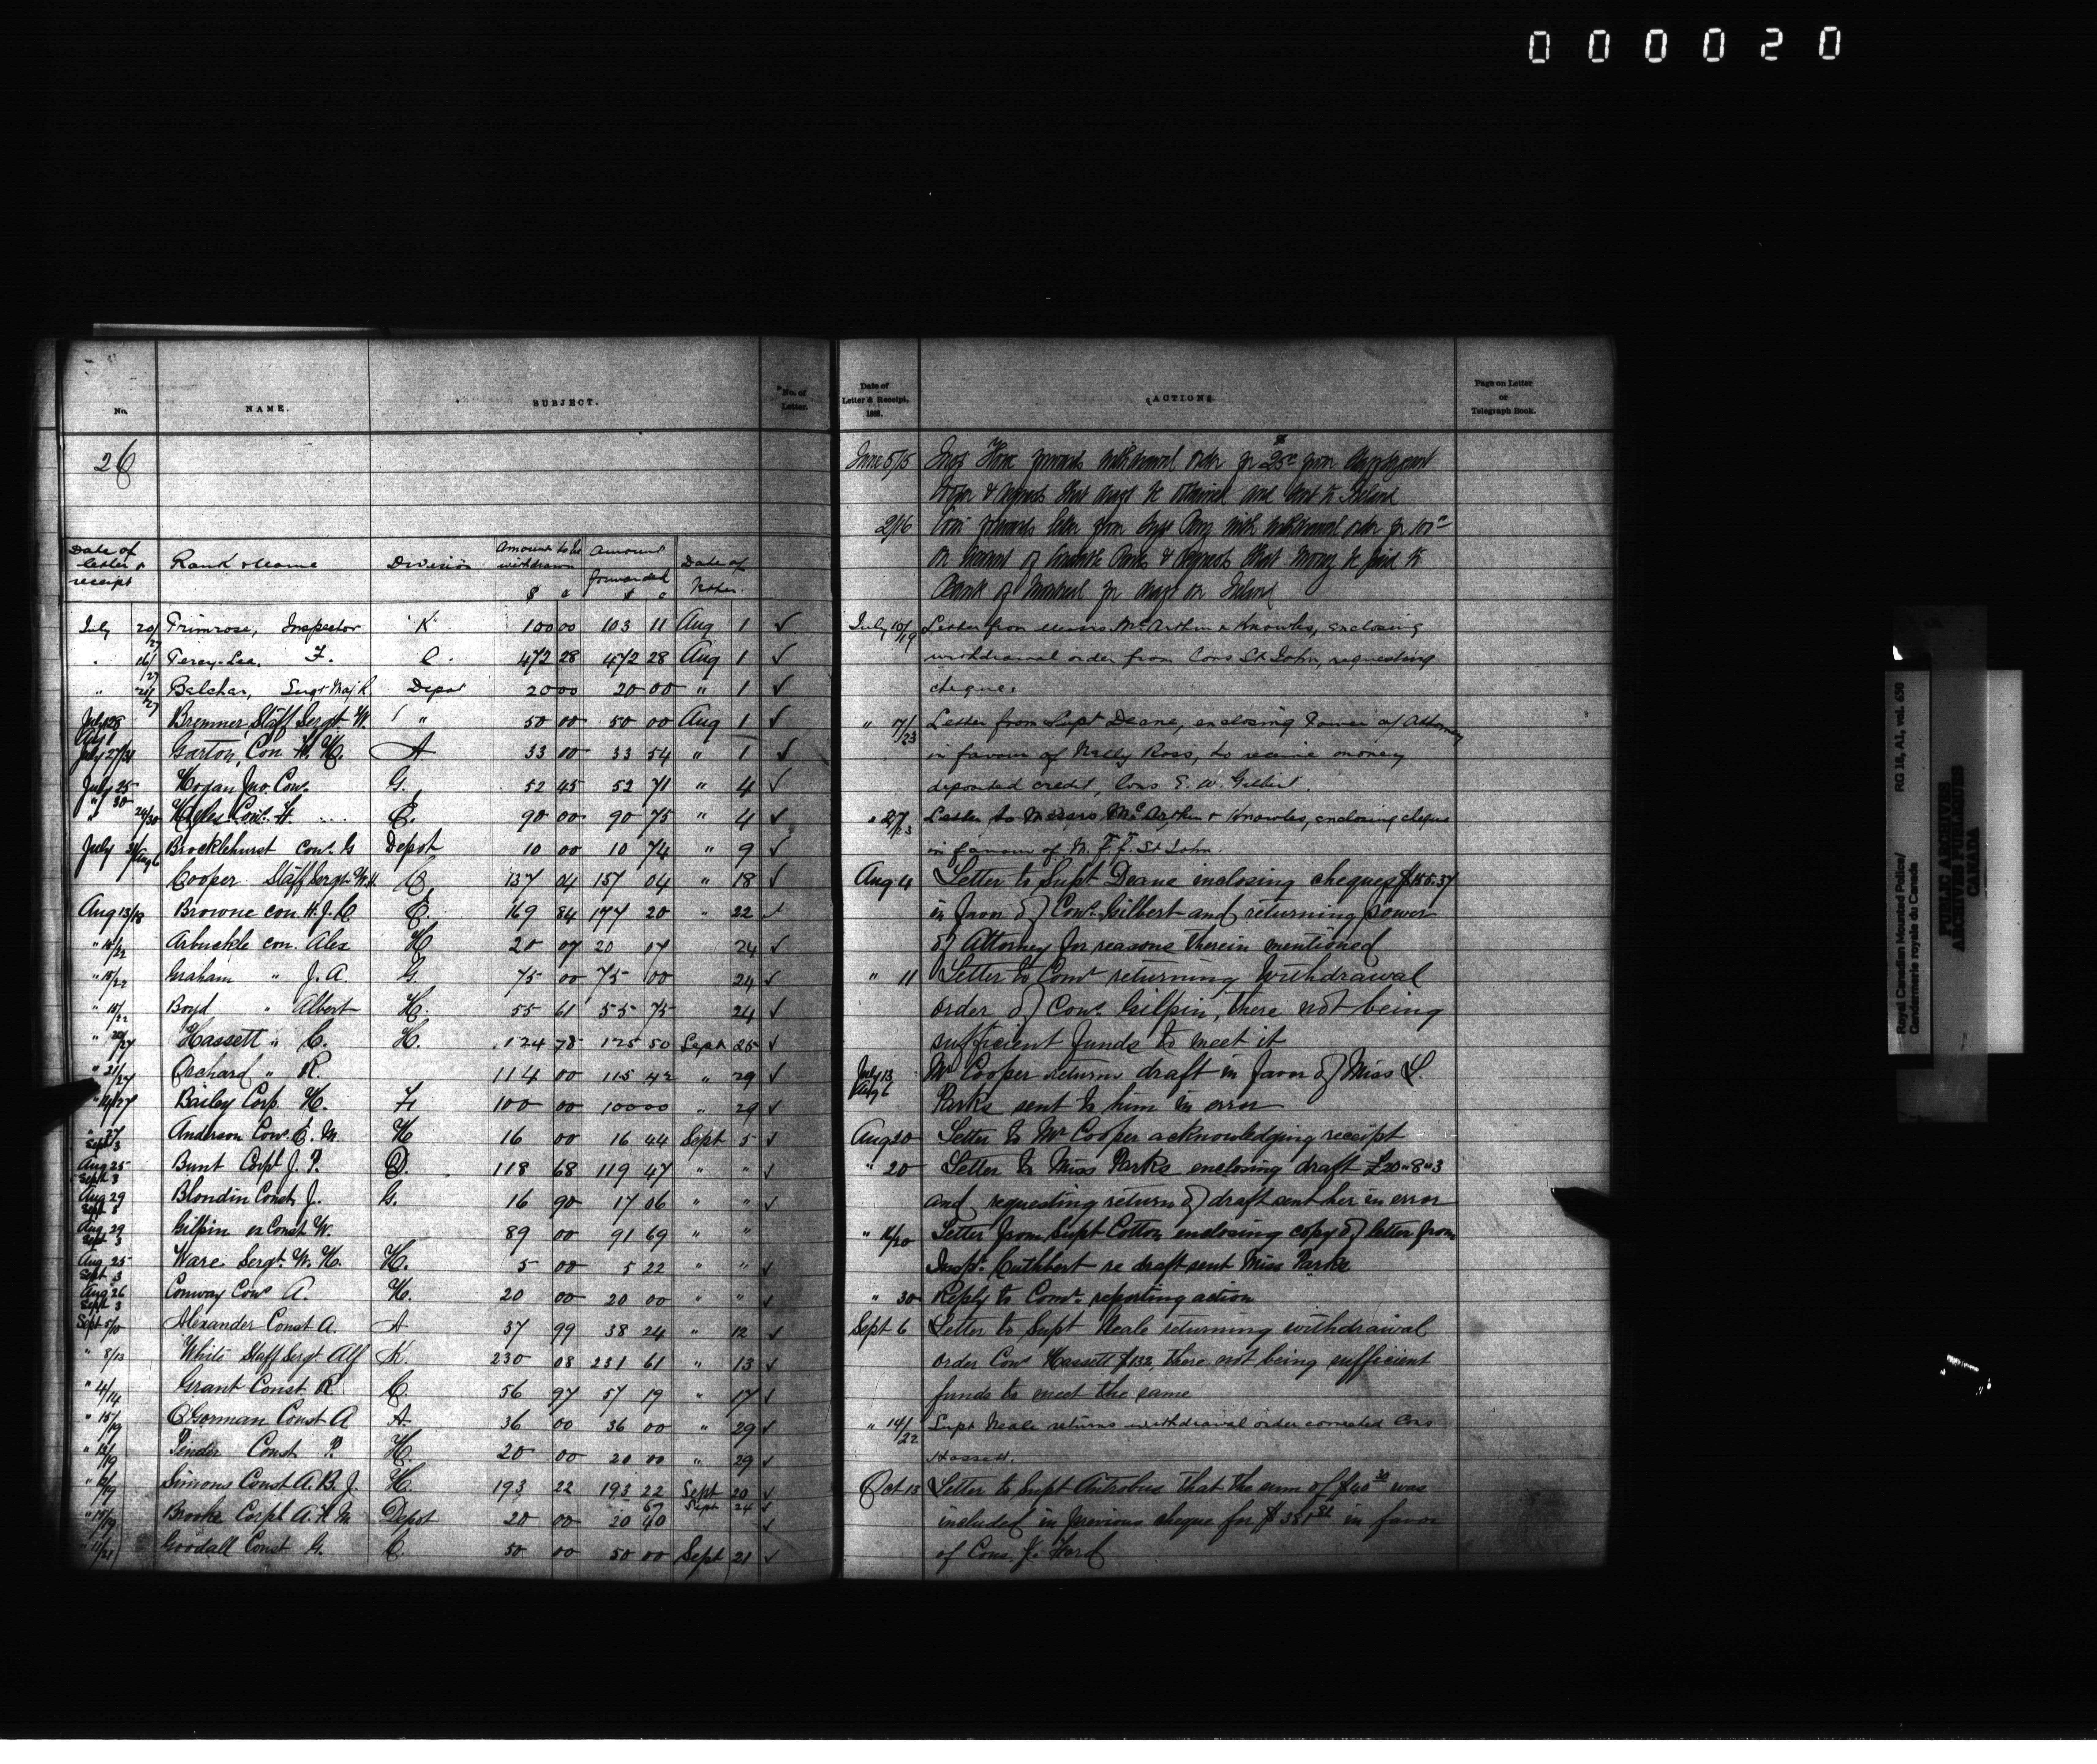 0 0 0 0 2 0
No. NAME. SUBJECT. No. of Letter.
26
Date of letter & receipt Rank & Name Division Amount to be withdrawn $ c Amount forwarded $ c Date of
July 20/27 Primrose, Inspector "K" 100 00 103 11 Aug 1 ✓
" 16/27 F. C. 472 28 472 28 Aug 1 ✓
" 21/27 Belcher, Sergt Maj R Depot 20 00 20 00 " 1 ✓
July 28 Aug 1 Bremner, Staff Sergt W. " 50 00 50 00 Aug 1 ✓
July 27/31 Garton, Con A 33 00 33 54 " 1 ✓
July 25 " 30 Hogan Jno. Con. G. 52 45 52 71 " 4 ✓
" 24/30 Con. H. E. 90 00 90 75 " 4 ✓
July 31/Aug 6 Brocklehurst Con. G Depot 10 00 10 74 " 9 ✓
Cooper Staff Sergt W.H. 137 04 157 04 " 18 ✓
Aug 13/18 Browne con. H. J. E. 169 84 174 20 " 22 ✓
Arbuckle con. Alex H 20 07 20 07 24 ✓
" 15/22 Graham " J. A. G. 75 00 75 00 24 ✓
" 15/22 Boyd " Albert H. 55 61 55 75 24 ✓
Hassett " C. H. 124 78 125 50 Sept 25 ✓
" 21/27 Orchard " R. 114 00 115 42 " 29 ✓
Bailey Corp. H. F. 100 00 100 00 " 29 ✓
" 27 Sept 3 Anderson Con. E. M. H 16 00 16 44 Sept 5 ✓
Aug 25 Sept 3 Bunt Corpl J. P. D. 118 68 119 47 " " ✓
Aug 29 Sept 3 Blondin Const J. G. 16 90 17 06 " " ✓
Aug 29 Sept 3 Gilpin ex Const W. 89 00 91 69 " "
Aug 25 Sept 3 Ware Sergt. W. H. H. 5 00 5 22 " " ✓
Aug 26 Sept 3 Conway Con. A. H. 20 00 20 00 " " ✓
Sept 5/10 Alexander Const A. A 37 99 38 24 " 12 ✓
" 8/13 White Staff Sergt. Alf K. 230 08 231 61 " 13 ✓
" 4/14 Grant Const R C. 56 97 57 19 " 17 ✓
" 15/19 O'Gorman Const A A. 36 00 36 00 " 29 ✓
" 12/19 Pender Const P. H. 20 00 20 00 " 29 ✓
" 12/19 Simons Const A. B. J. H. 193 22 193 22 Sept 20 ✓
" 15/19 Brooke Corpl A. H. M. Depot 20 00 20 40 67 Sept 24 ✓
" 11/21 Goodall Const G. C. 50 00 50 00 Sept 21 ✓
Date of Letter & Receipt, 188 . ACTIONS Page on Letter or Telegraph Book.
June 5/15 forwards withdrawal order for 25c from
& requests that be obtained and sent to Ireland
2/16 Com forwards letter from Supt with withdrawal order for 100
on account of Parks & requests that money be paid to
Bank of Montreal for on Ireland
July 10/19 Letter from Messrs McArthur & Knowles, enclosing
withdrawal order from Cons St John, requesting
cheque.
" 17/23 Letter from Supt Deane, enclosing Power of Attorney
in favour of Nelly Ross, to receive money
deposited credit, Cons E. W. Gilbert.
" 27/23 Letter to Messrs McArthur & Knowles, enclosing cheque
in favour of N. F. F. St John.
Aug 4 Letter to Supt Deane inclosing cheques $155.37
in favor of Con. Gilbert and returning power
of Attorney for reasons therein mentioned
" 11 Letter to Comr returning Withdrawal
order of Con. Gilpin, there not being
sufficient funds to meet it
July 13 Aug 6 Mr Cooper returns draft in favor of Miss L.
Parks sent to him in error
Aug 20 Letter to Mr Cooper acknowledging receipt
" 20 Letter to Miss Parks enclosing draft £20"8"3
and requesting return of draft sent her in error
" 16/20 Letter from Supt Cotton enclosing copy of letter from
Inspr. Cuthbert re draft sent Miss Parks
" 30 Reply to Comr. reporting action
Sept 6 Letter to Supt Neale returning withdrawal
order Con. Hassett $132, there not being sufficient
funds to meet the same
" 14/22 Supt Neale returns withdrawal order corrected Cons
Hassett.
Oct 13 Letter to Supt Antrobus that the sum of $40 30 was
included in previous cheque for $381 81 in favor
of Cons. J. Herd
Royal Canadian Mounted Police/
Gendarmerie royale du Canada
RG 18, A1, vol. 630
PUBLIC ARCHIVES
ARCHIVES PUBLIQUES
CANADA